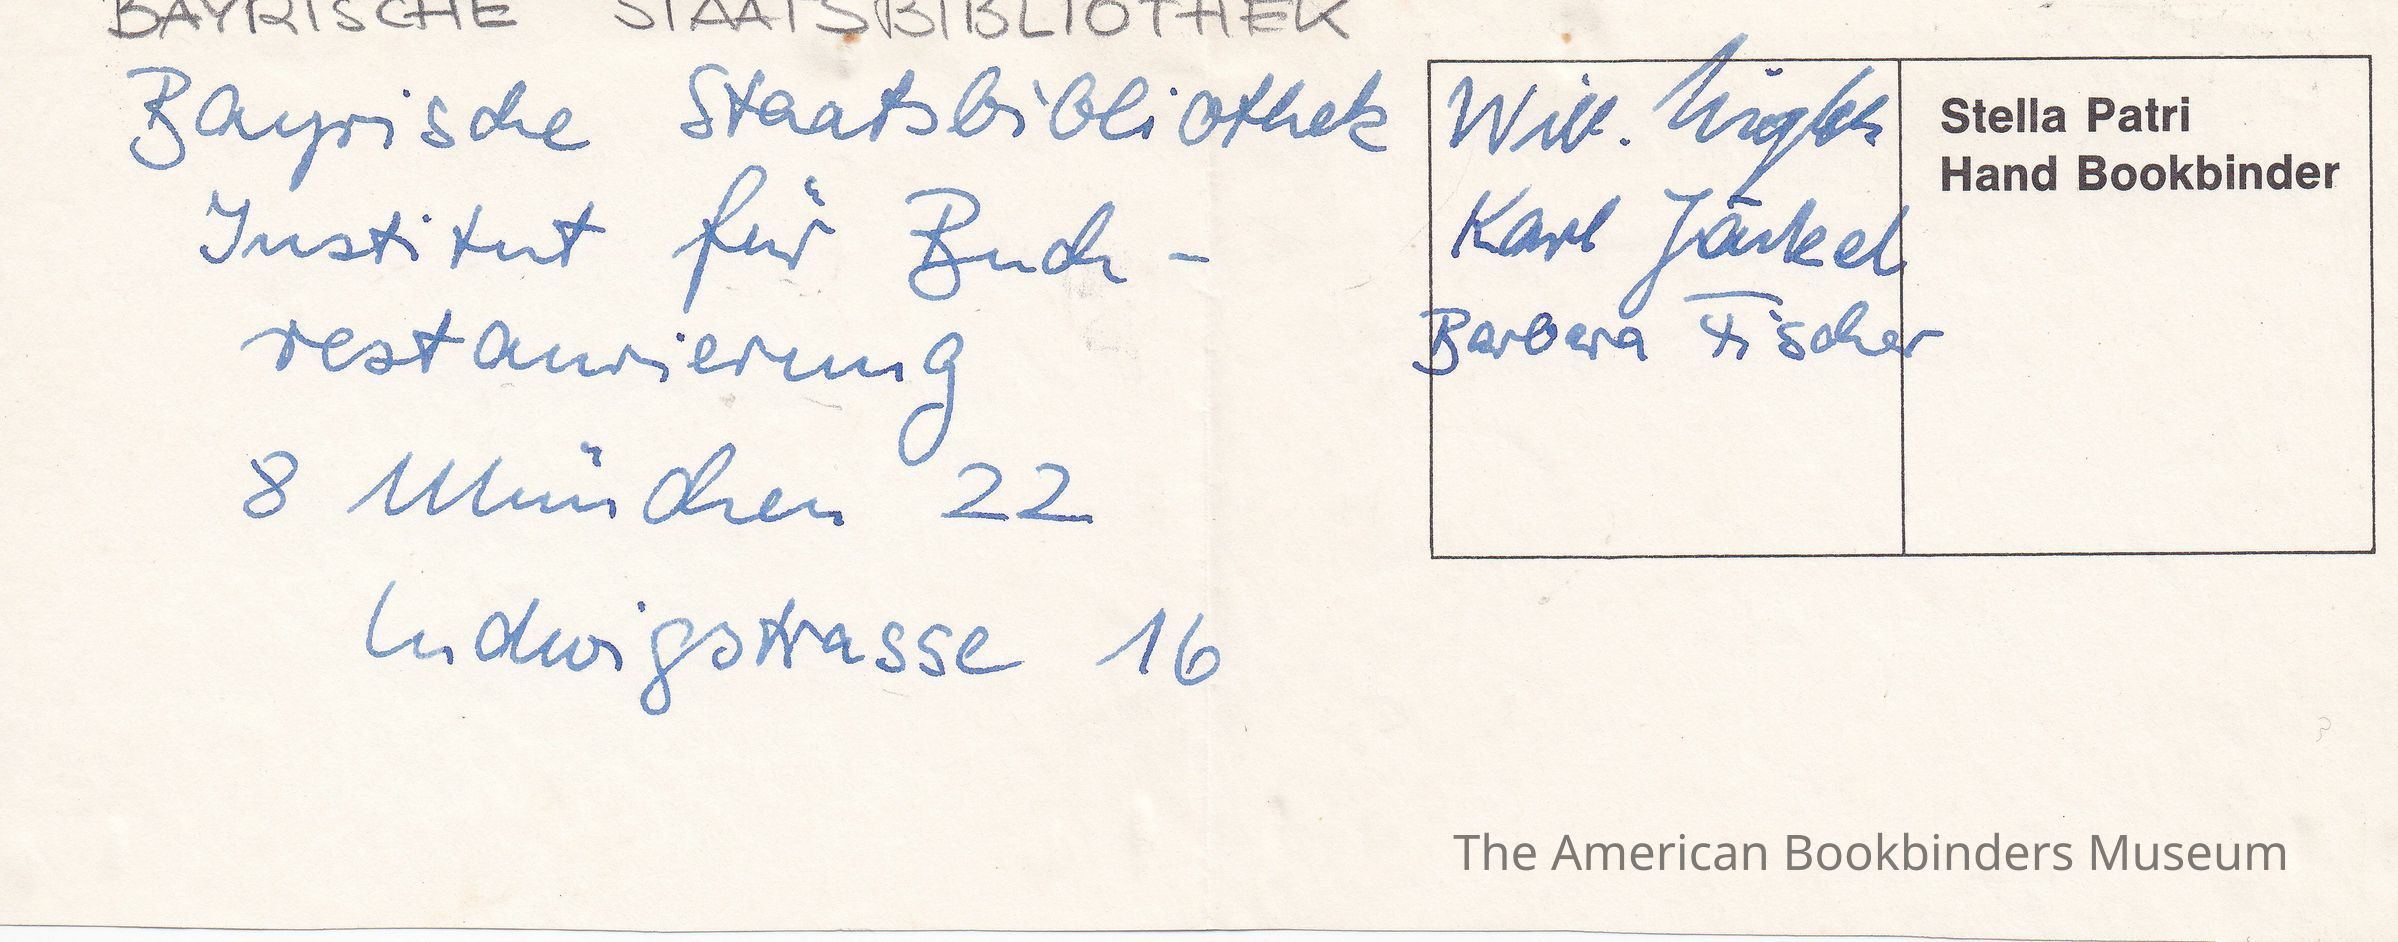 BAYRISCHE STAATSBIBLIOTHEK
Bayrische Staatsbibliothek
Institut für Buch-
restaurierung
8 München 22
Ludwigstrasse 16
Will.
Karl Jäckel
Barbara Fischer
Stella Patri
Hand Bookbinder
The American Bookbinders Museum